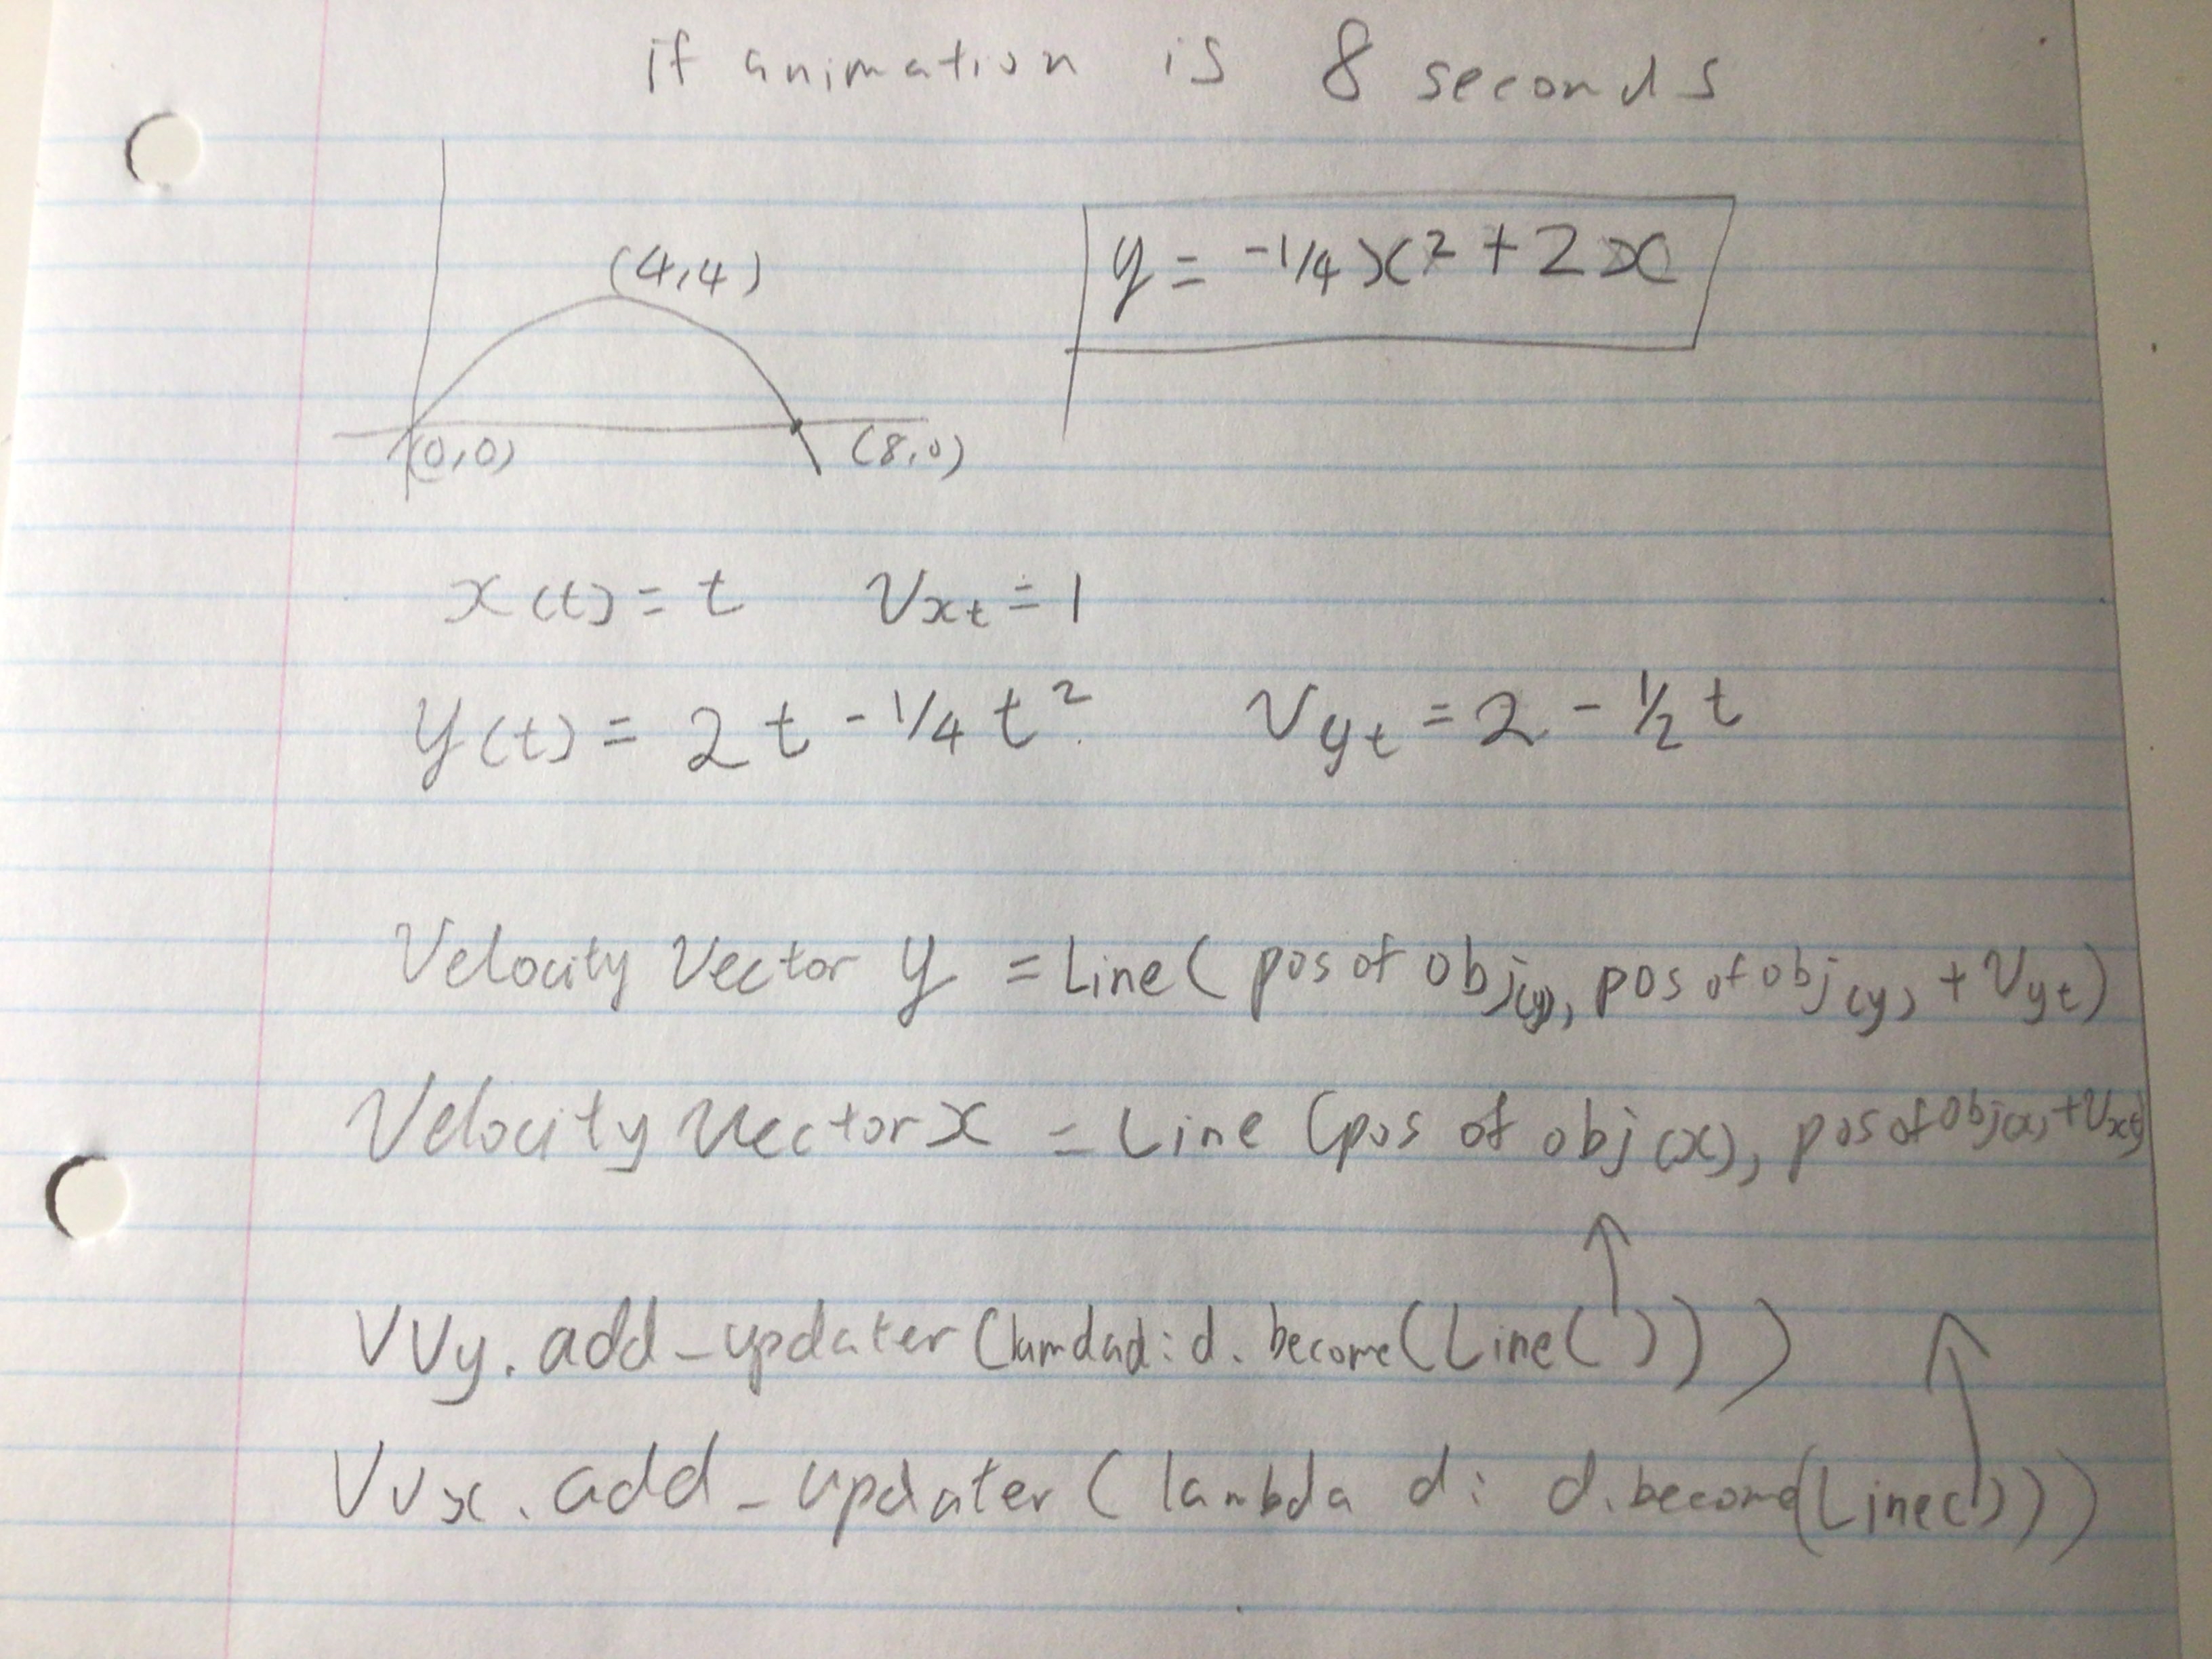 if animation is 8 seconds
(4,4)
y = -1/4x² + 2x
(0,0) (8,0)
x(t) = t vxt = 1
y(t) = 2t - 1/4t² vyt = 2 - 1/2t
Velocity Vector y = Line( pos of obj(y), pos of obj(y) + vyt)
Velocity Vector x = Line (pos of obj(x), pos of obj(x) + vxt)
VVy.add_updater(lamdad: d. become(Line( )))
VVx.add_updater( lambda d: d.become(Line( )))